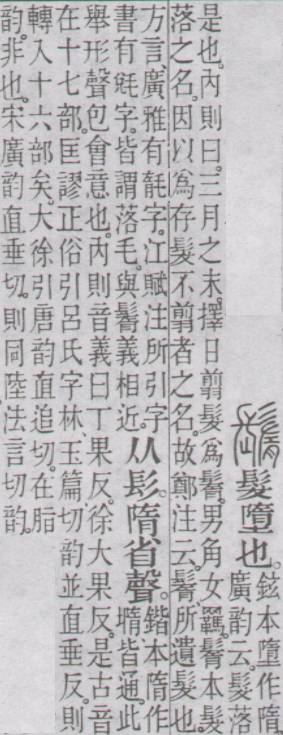 髮墮也。
鉉本墮作隋。
廣韵云。髮落
是也。內則曰。三月之末。擇日翦髮爲鬌。男角女羈。鬌本髮
落之名。因以爲存髮不翦者之名。故鄭注云。鬌、所遺髮也。
方言、廣雅有毻字。江賦注所引字
書有字。皆謂落毛。與鬌義相近。
从髟。隋省聲。
鍇本隋作
墯。皆通。此
舉形聲包會意也。內則音義曰丁果反。徐大果反。是古音
在十七部。匡謬正俗引呂氏字林、玉篇切韵並直垂反。則
轉入十六部矣。大徐引唐韵直追切。在脂
韵。非也。宋廣韵直垂切。則同陸法言切韵。